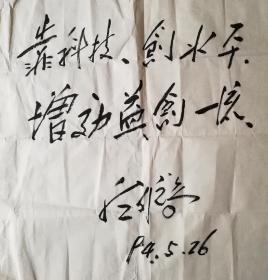 靠科技、創水平、
增効益、創一流、
94.5.26